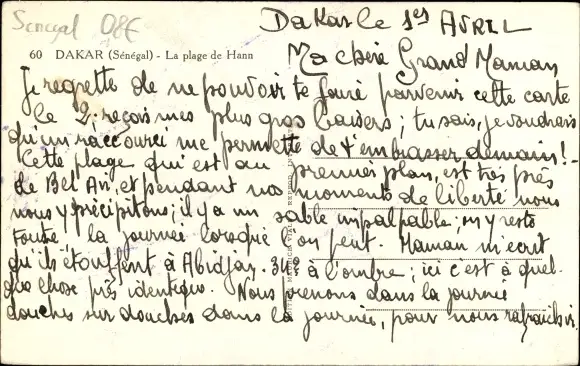 Senegal 08€
Dakar le 1er AVRIL
60 DAKAR (Sénégal) - La plage de Hann
Ma chère Grand Maman
Je regrette de ne pouvoir te faire parvenir cette carte
le 2; reçois mes plus gros baisers; tu sais, je voudrais
qu'un raccourci me permette de t'embrasser demain!
Cette plage qui est au premier plan, est très près
de Bel Air, et pendant nos moments de liberté nous
nous y précipitons; il y a un sable impalpable; on y reste
toute la journée lorsque l'on peut. Maman m'écrit
qu'ils étouffent à Abidjan. 34° à l'ombre; ici c'est à quel-
que chose près identique. Nous prenons dans la journée
douches sur douches dans la journée, pour nous rafraichir.